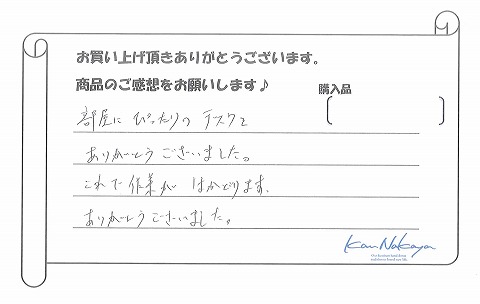 お買い上げ頂きありがとうございます。
商品のご感想をお願いします♪
購入品
部屋に ぴったりの デスクを
ありがとうございました。
これで作業が はかどります。
ありがとうございました。
Kan Nakaya